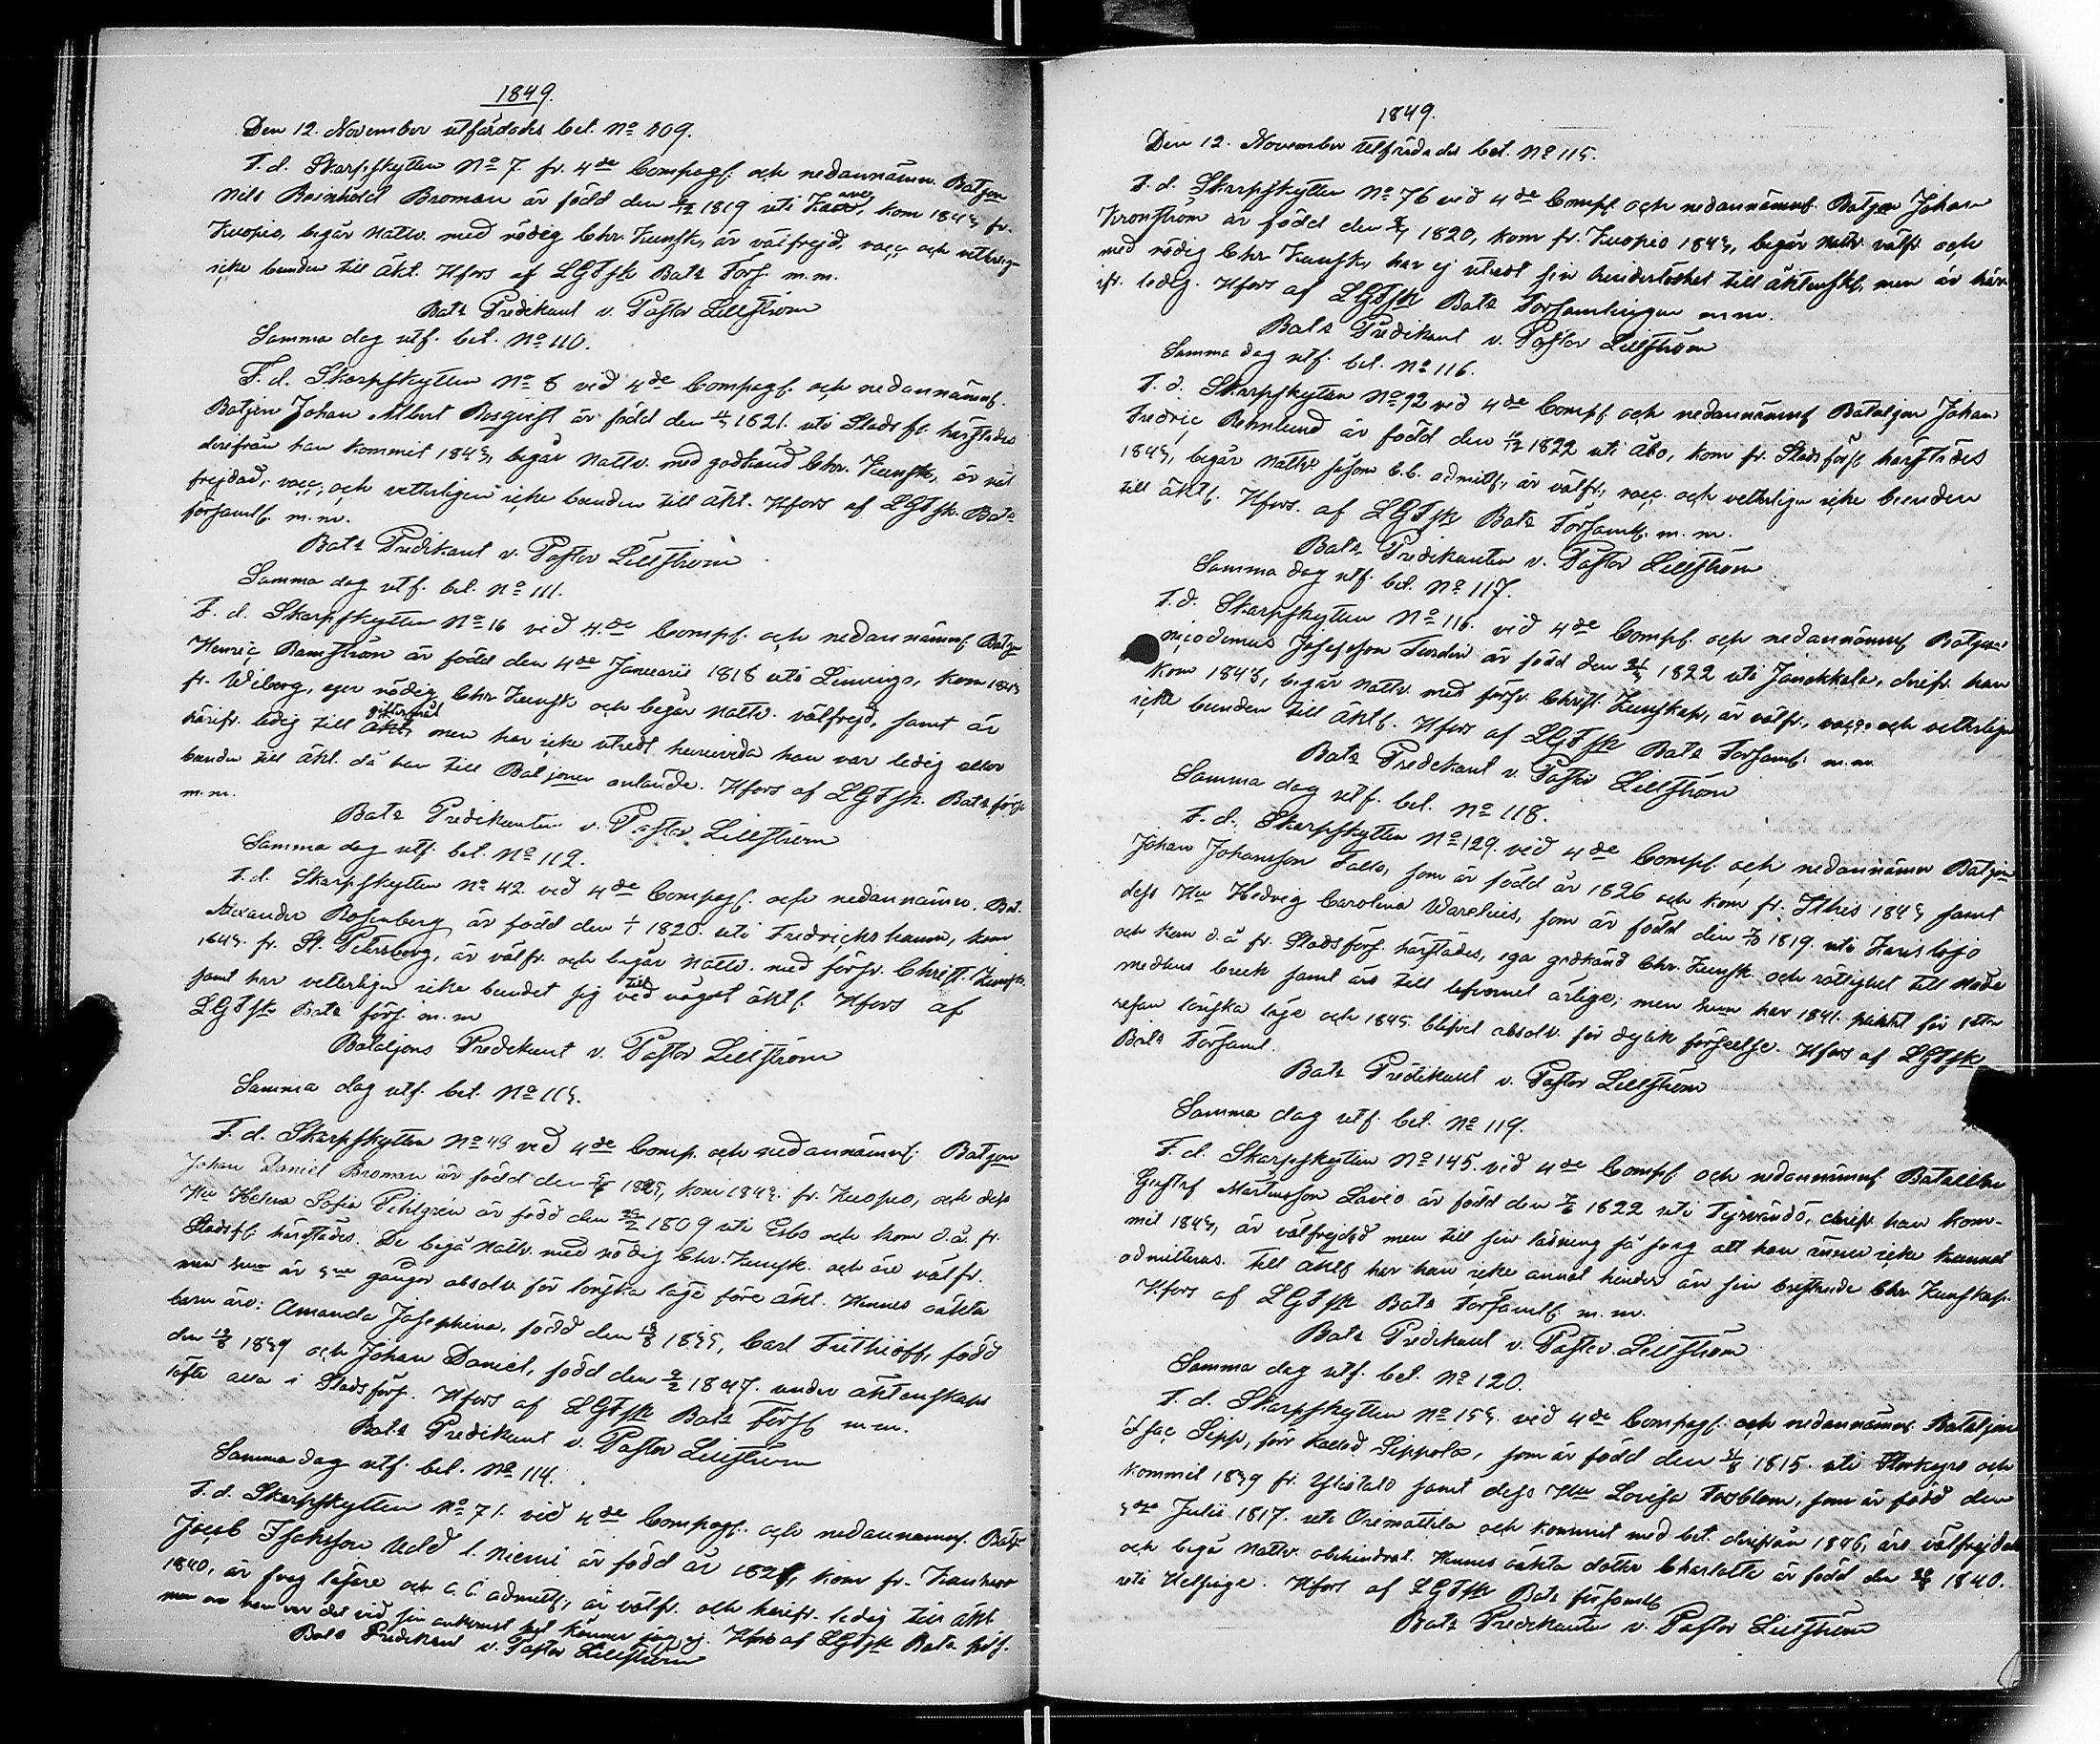 1849.
Den 12. November utfärdades bet. No 109.
F. d. Skarpskytten No 7 fr. 4de Compagf. och nedannämn. Batjon
Nils Reinhold Broman är född den 1819 uti kom fr.
Kuopio, begär nattv. med nödig Chr. Kunsk., är välfrejd, vacc och vetterlig
icke bunden till äkt. Hfors af LGFSk Bats Förs. m. m.
Bats Predikant v. Pastor Lillström
Samma dag utf. bet. No 110.
F. d. Skarpskytten No 8 vid 4de Compagf. och nedannämnf.
Batjon Johan Albert Rosqvist är född den 1821. uti Stads fs. härstädes
derifrån han kommit begär nattv. med godkänd Chr. Kunsk., är väl
frejdad, vacc. och vetterligen icke bunden till äkt. Hfors af LGFSk. Bats
församlf. m. m.
Bats Predikant v. Pastor Lillström
Samma dag utf. bet. No 111.
F. d. Skarpskytten No 16 vid 4.de Compf. och nedannämnf Batjon
Henric Ramström är född den 4de Januarii 1818 uti kom
fr. Wiborg, eger nödig Chr Kunsk och begär nattv. välfrejd, samt är
härifr. ledig till giftermål men har icke utredt huruvida han var ledig eller
bunden till äkt. då han till Bataljonen anlände. Hfors af LGFSk. Bats förs
m. m.
Bats Predikanten v. Pastor Lillström
Samma dag utf. bet. No 112.
F. d. Skarpskytten No 42 vid 4de Compagf. och nedannämn. Bat.
Alexander Rosenberg är född den 1/1 1820. uti Fredrichshamn, kom
fr. St. Petersborg, är välfr. och begär Nattv. med försv. Christ. Kunsk.
samt har vetterligen icke bundet sig till något äktf. Hfors af
LGFSk Bats förs. m. m
Bataljons Predikant v. Pastor Lillström
Samma dag utf. bet. No 113.
F. d. Skarpskytten No 48 vid 4de Comp. och nedannämnf. Batjon
Johan Daniel Broman är född den kom fr. Kuopio, och dess
Hu Helena Sofia Pihlgrén är född den 1809 uti Esbo och kom d. å. fr.
Stadsfs. härstädes. De begå Nattv. med nödig Chr. Kunsk. och äro välfr.
men hon är gånger absolv. för lönska läge före äkt. Hennes oäkta
barn äro: Amanda Josephina, född den Carl Frithioff, född
den 1839 och Johan Daniel, född den 1847. under äktenskaps
löfte alla i Stadsförs. Hfors af LGFSk Bats Försf m m.
Bats Predikant v. Pastor Lillström
Samma dag utf. bet. No 114.
F. d. Skarpskytten No 71. vid 4de Compagf. och nedannämnf. Batj
Jacob Isaksson l. Niemi är född år kom fr.
1840, är svag läsare och C. C. admitt, är välfr. och härifr. ledig till äkt.
men om han var det vid sin ankomst hit känner jag ej. Hfors af LGFSk Bats förs.
Bats Predikant v. Pastor Lillström
1849.
Den 12. November utfärdades bet. No 115.
F. d. Skarpskytten No 76 vid 4de Compf och nedannämnf. Batjon Johan
Kronström är född den 1820, kom fr. Kuopio begär nattv. välfr och
med nödig Chr Kunsk, har ej utredt sin hinderlöshet till äktenskf, men är här-
ifr. ledig. Hfors af LGFSk Bats Församlingen m m.
Bats Predikant v. Pastor Lillström
Samma dag utf. bet. No 116.
F. d. Skarpskytten No 92 vid 4de Compf och nedannämnf Bataljon Johan
Fredric Rehnlund är född den 1822 uti Åbo, kom fr. Stadsförsf härstädes
begär Nattv. såsom C. C. admitt, är välfr., vacc. och vetterligen icke bunden
till äktf. Hfors. af LGFSk Bats Församlf. m. m.
Bats Predikanten v. Pastor Lillström
Samma dag utf. bet. No 117.
F. d. Skarpskytten No 116. vid 4de Compf och nedannämnf Batjon
Nicodemus Josefsson är född den 1822 uti Janakkala, derifr. han
kom begär nattv. med försv. Christ. Kunskap, är välfr., vacc. och vetterligen
icke bunden till äktf. Hfors af LGFSk Bats Församlf. m. m.
Bats Predikant v. Pastor Lillström
Samma dag utf. bet. No 118.
F. d. Skarpskytten No 129. vid 4de Compf och nedannämn Batjon
Johan Johansson Fallo, som är född år 1826 och kom fr. samt
dess Hu Hedvig Carolina Warelius, som är född den 1819. uti Karislojo
och kom d. å fr. Stadsförs. härstädes, ega godkänd Chr. Kunsk. och rättighet till Nåde
medlens bruk samt äro till lefvernet ärlige; men hon har 1841. pliktat för 1sta
resan lönska läge och blifvit absolv. för dylik förseelse. Hfors af LGFSk
Bats Församl.
Bats Predikant v. Pastor Lillström
Samma dag utf. bet. No 119.
F. d. Skarpskytten No 145. vid 4de Compf och nedannämnf Batallion
Gustaf Mårtensson Lavio är född den 1822 uti Tyrvändö, derifr. han kom-
mit är välfrejdad men till sin läsning så svag att han ännu icke kunnat
admitteras. Till äktf har han icke annat hinder än sin bristande Chr. Kunskap.
Hfors af LGFSk Bats Församlf m. m.
Bats Predikant v. Pastor. Lillström
Samma dag utf. bet. No 120.
F. d. Skarpskytten vid 4de Compagf. och nedannämnf. Bataljon
Isac Sipp, förr kallad Sippola, som är född den 1815. uti Storkyro och
kommit 1839 fr. Ylistaro samt dess Hu Lovisa Forsblom, som är född den
Julii 1817. uti Orimattila och kommit med bet. derifrån 1846, äro välfrejdade
och begå Nattv. obehindrat. Hennes oäkta dotter Charlotte är född den 1840.
uti Helsinge. Hfors af LGFSk Bats församlf
Bats Predikanten v. Pastor Lillström